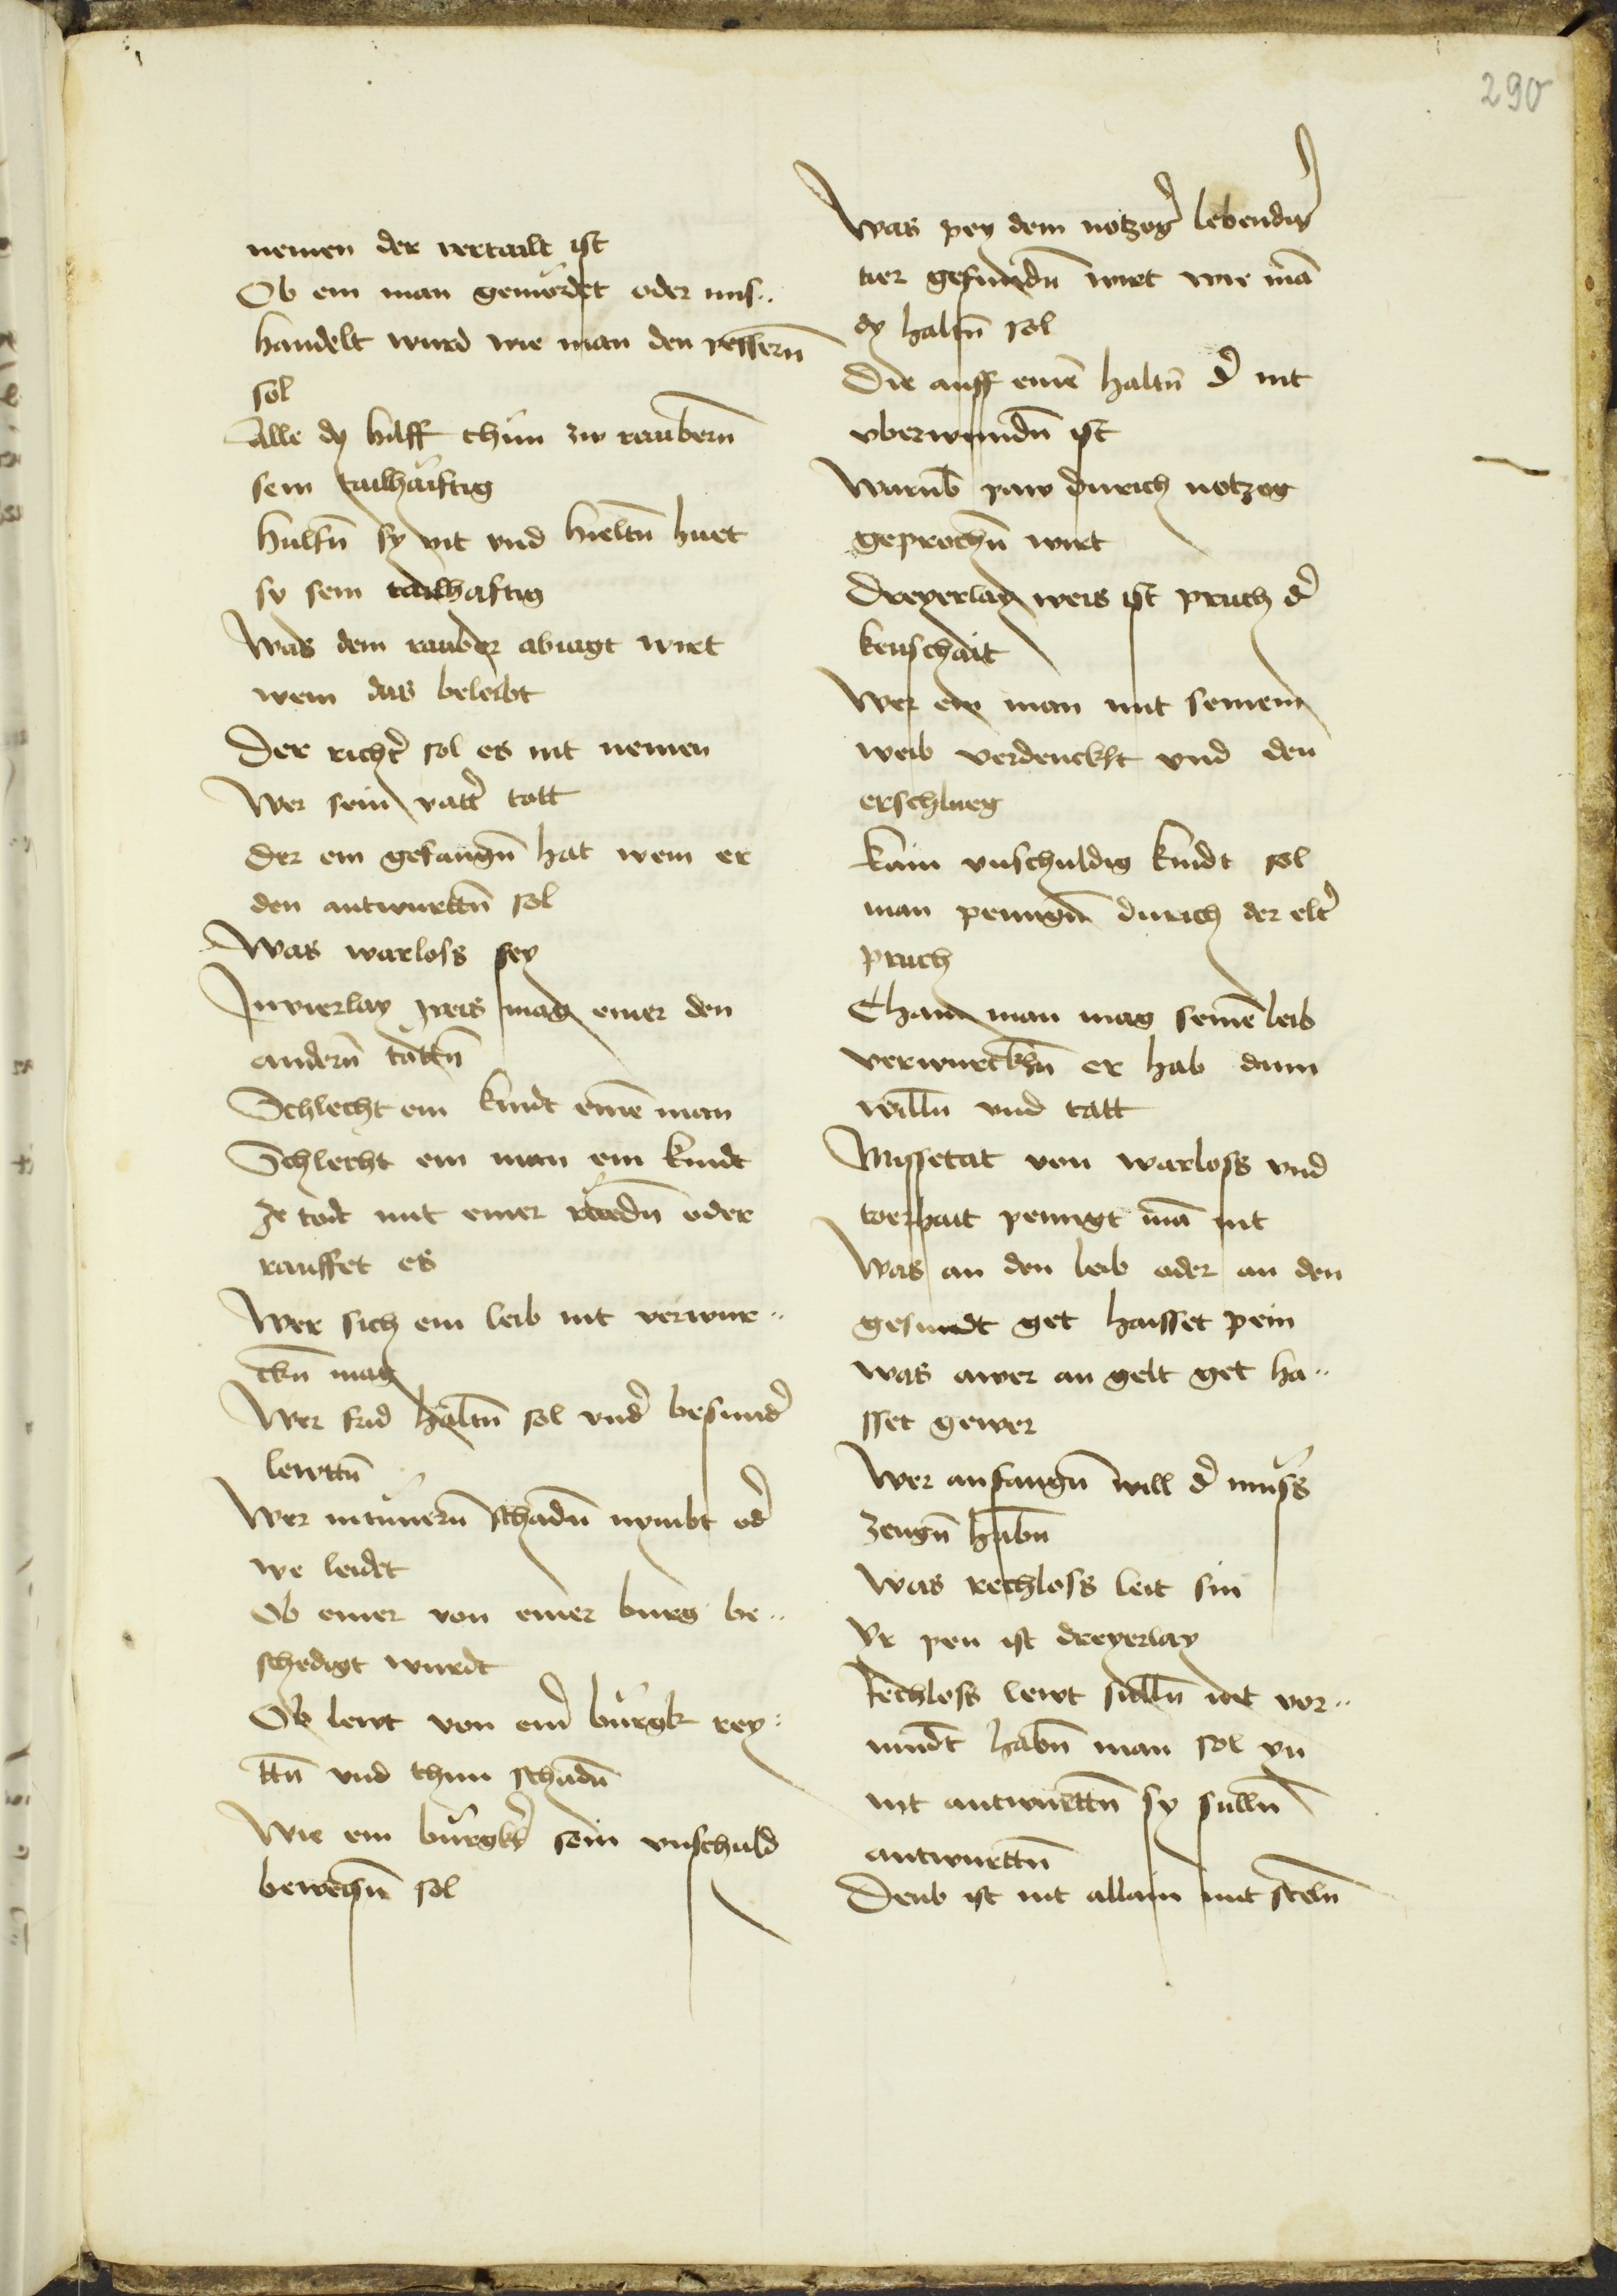 290
nemen der vertailt ist
Ob ein man gemördet oder mis¨
handelt wurd wie man den pessern̄
sol
Alle dy hilff thün zw raubern̄
sein tailhäftig
Hulfn̄ sy nit vnd hieltn̄ huet
sy sein tailhaftig
Was dem rauber abiagt wirt
wem das beleibt
Der richt̄ sol es nit nemen
Wer sein vatt̄ tott
Der ein gefangn̄ hat wem er
den antwurttn̄ sol
Was warloss sey
In vierlay weis mag einer den
andern̄ töttn̄
Schlecht ein kindt einē man
Schlecht ein man ein kindt
ze tod mit einer rüedn̄ oder
rauffet es
Wer sich ein leib nit verwur¨
ckn̄ mag
Wer frid haltn̄ sol vnd̄ besund̄
lewttn̄
Wer in tünern̄ schadn̄ nymbt od̄
we leidet
Ob einer von einer burg be¨
schedigt wurdt
Ob lewt von ein̄ bürgk rey¨
ttn̄ vnd thun schadn̄
Wie ein bürgk̄ sein vnschuld
bewegn̄ sol
Was pey dem notzoḡ lebendiḡ
tier gefundn̄ wirt wie mā
dy haltn̄ sol
Die auff einē haltn̄ d̄ nit
vberwundn̄ ist
Warub̄ paw durich notzog
geprochn̄ wirt
Dreyerlay weis ist pruch d̄
keuschait
Wer ein man mit seinem
weib verdenckht vnd den
erschlueg
Kain vnschuldig kindt sol
man penign̄ durich der elt̄
pruch
Chain man mag seinē leib
verwurckhn̄ er hab dann
willn̄ vnd tatt
Missetat von warloss vnd
torhait penigt mā nit
Was an den leib oder an den
gesundt get haisset pein
was awer an gelt get ha¨
sset gewer
Wer anfangn̄ will d̄ müss
zeugn̄ habn̄
Was rechloss leit sin
Ir pen ist dreyerlay
Rechloss lewt sulln̄ nit vor¨
mundt habn̄ man sol yn
nit antwurttn̄ sy sulln̄
antwurttn̄
Deub ist nit allain mit steln̄